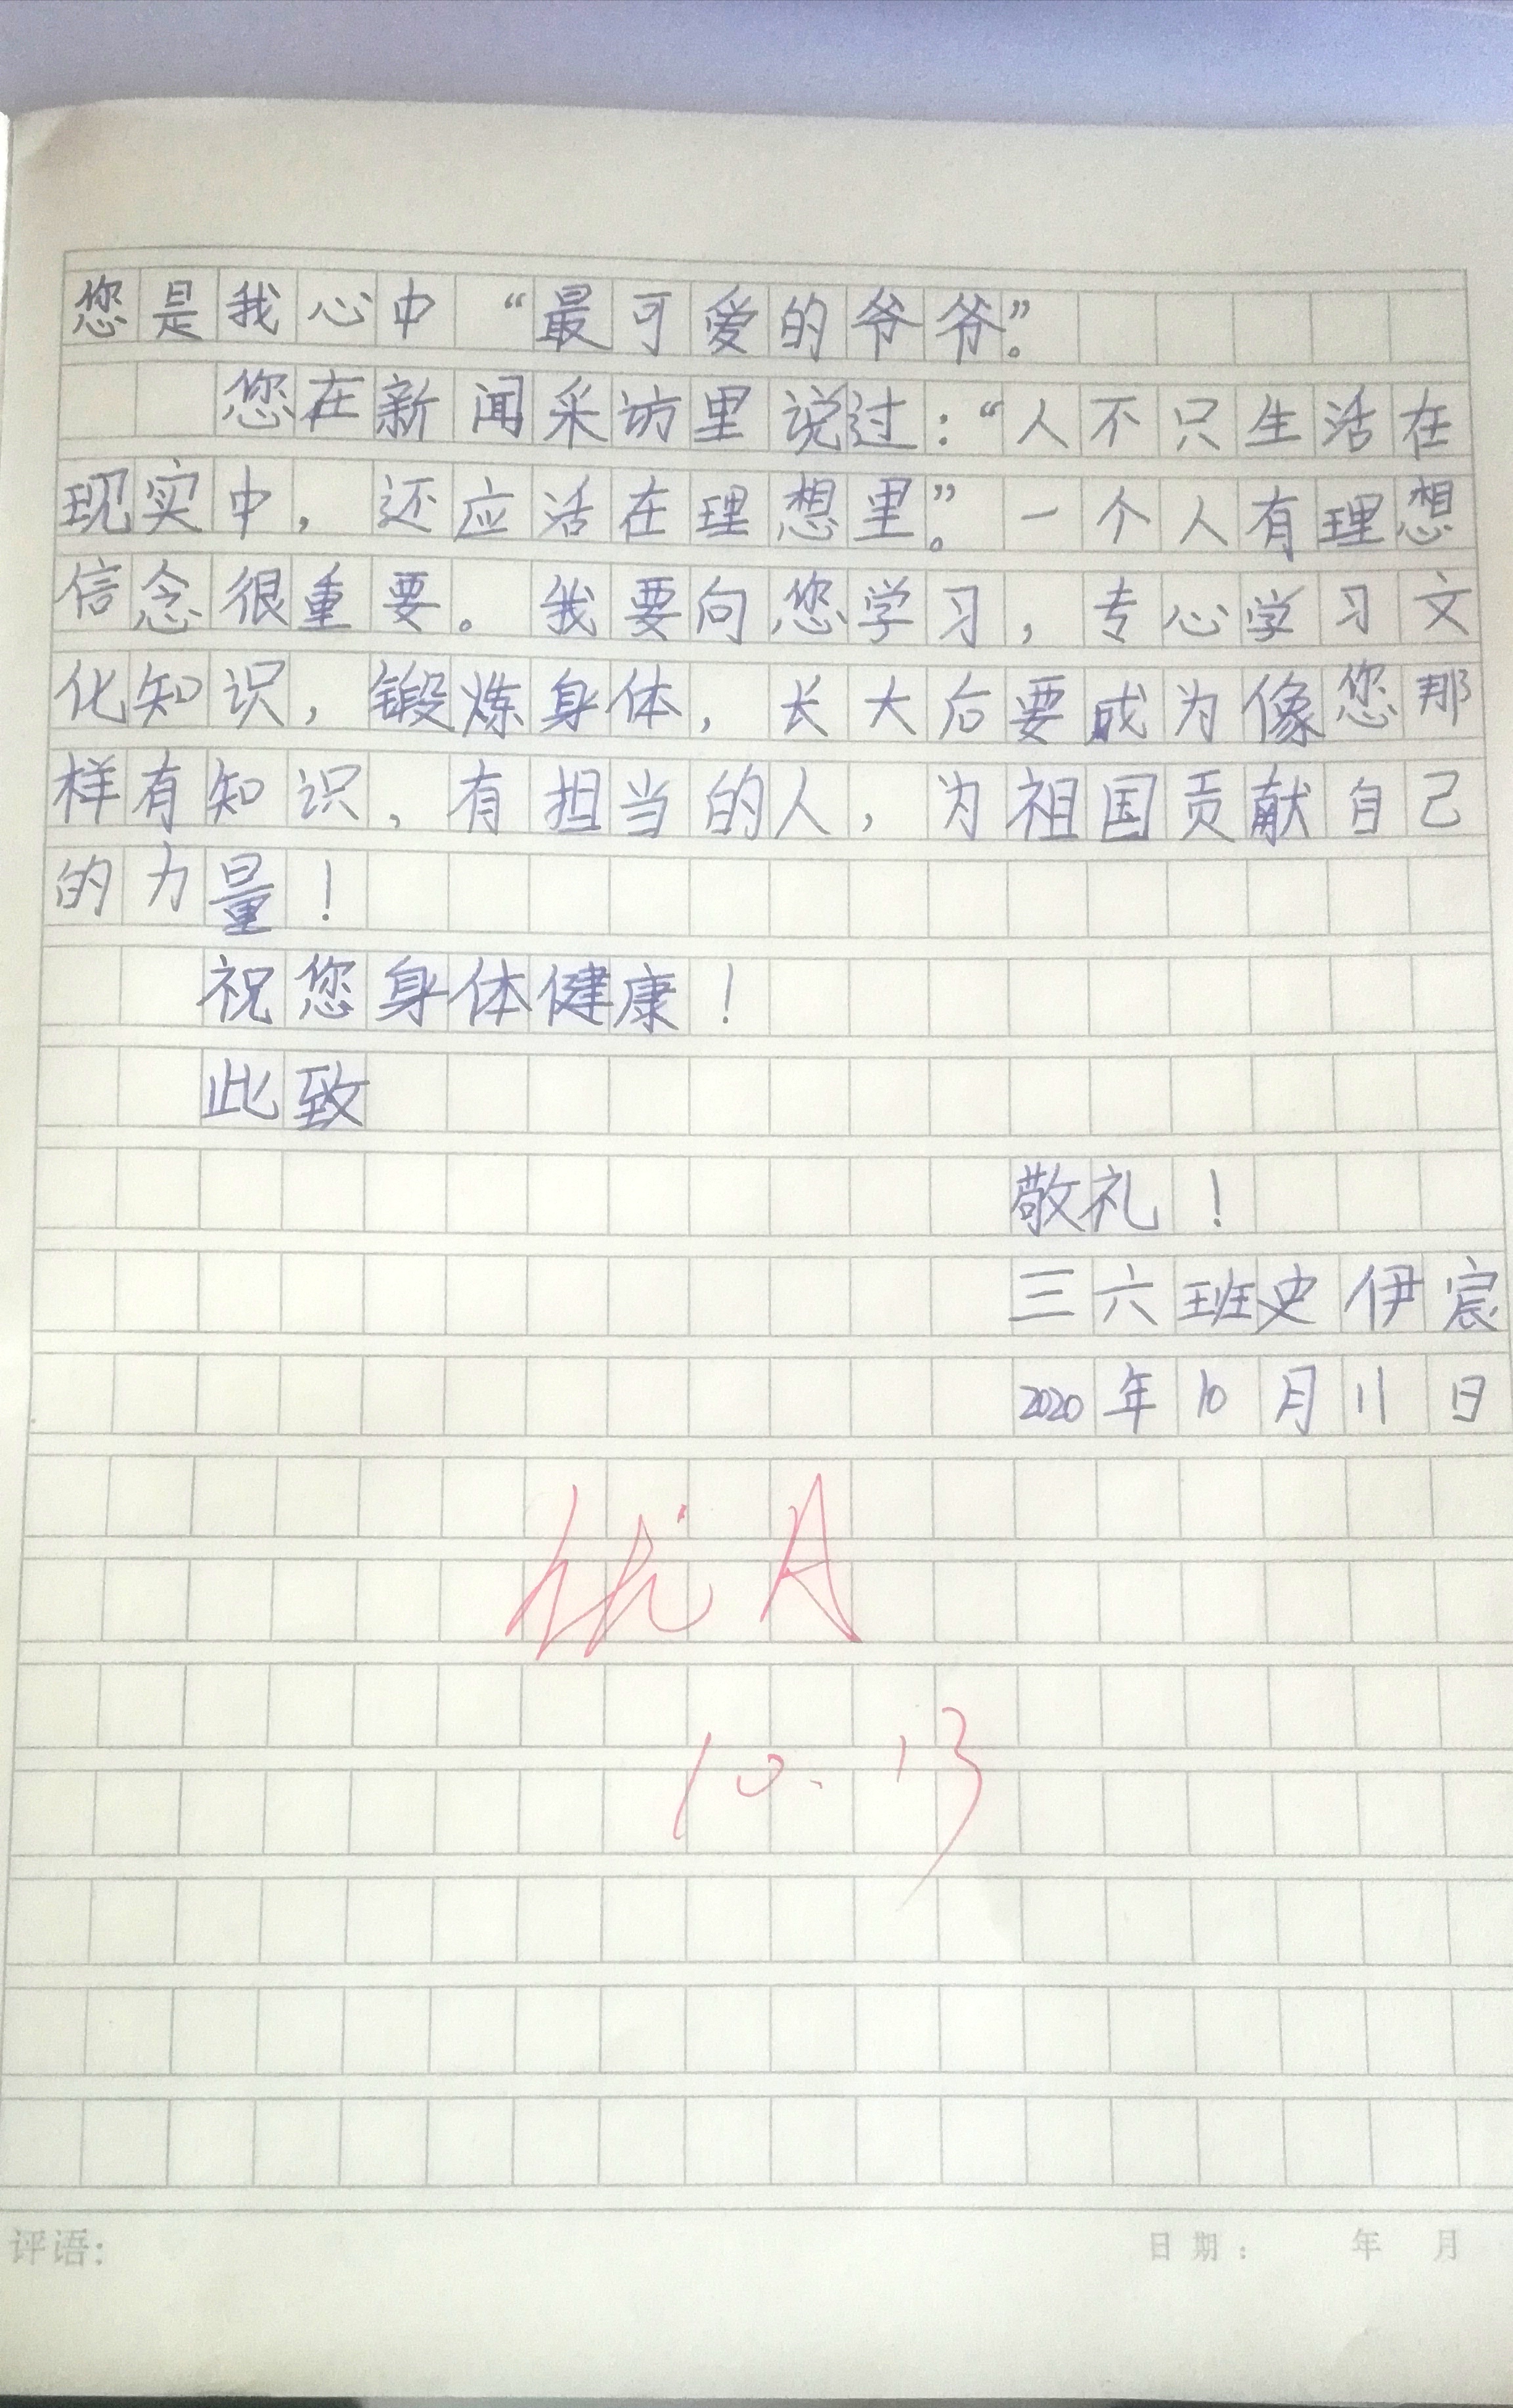 您是我心中“最可爱的爷爷”。
您在新闻采访里说过：“人不只生活在
现实中，还应活在理想里。”一个人有理想
信念很重要。我要向您学习，专心学习文
化知识，锻炼身体，长大后要成为像您那
样有知识，有担当的人，为祖国贡献自己
的力量！
祝您身体健康！
此致
敬礼！
三六班史伊宸
2020年10月11日
优A
10.13
评语：
日期： 年 月